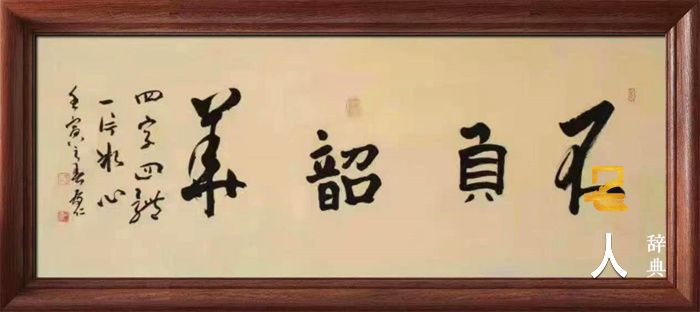 不負韶華
四字四體
一片冰心
壬寅之春
名人
辞典